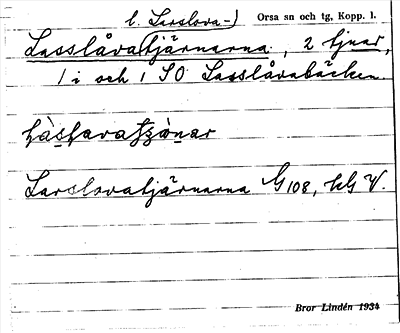 l. Larslova-) Orsa sn och tg, Kopp. l.
Lasslåvatjärnarna, 2 tjnar,
1 i och 1 SO Lasslåvabäcken.
Larslovatjärnarna G 108, kG V.
Bror Lindén 1934